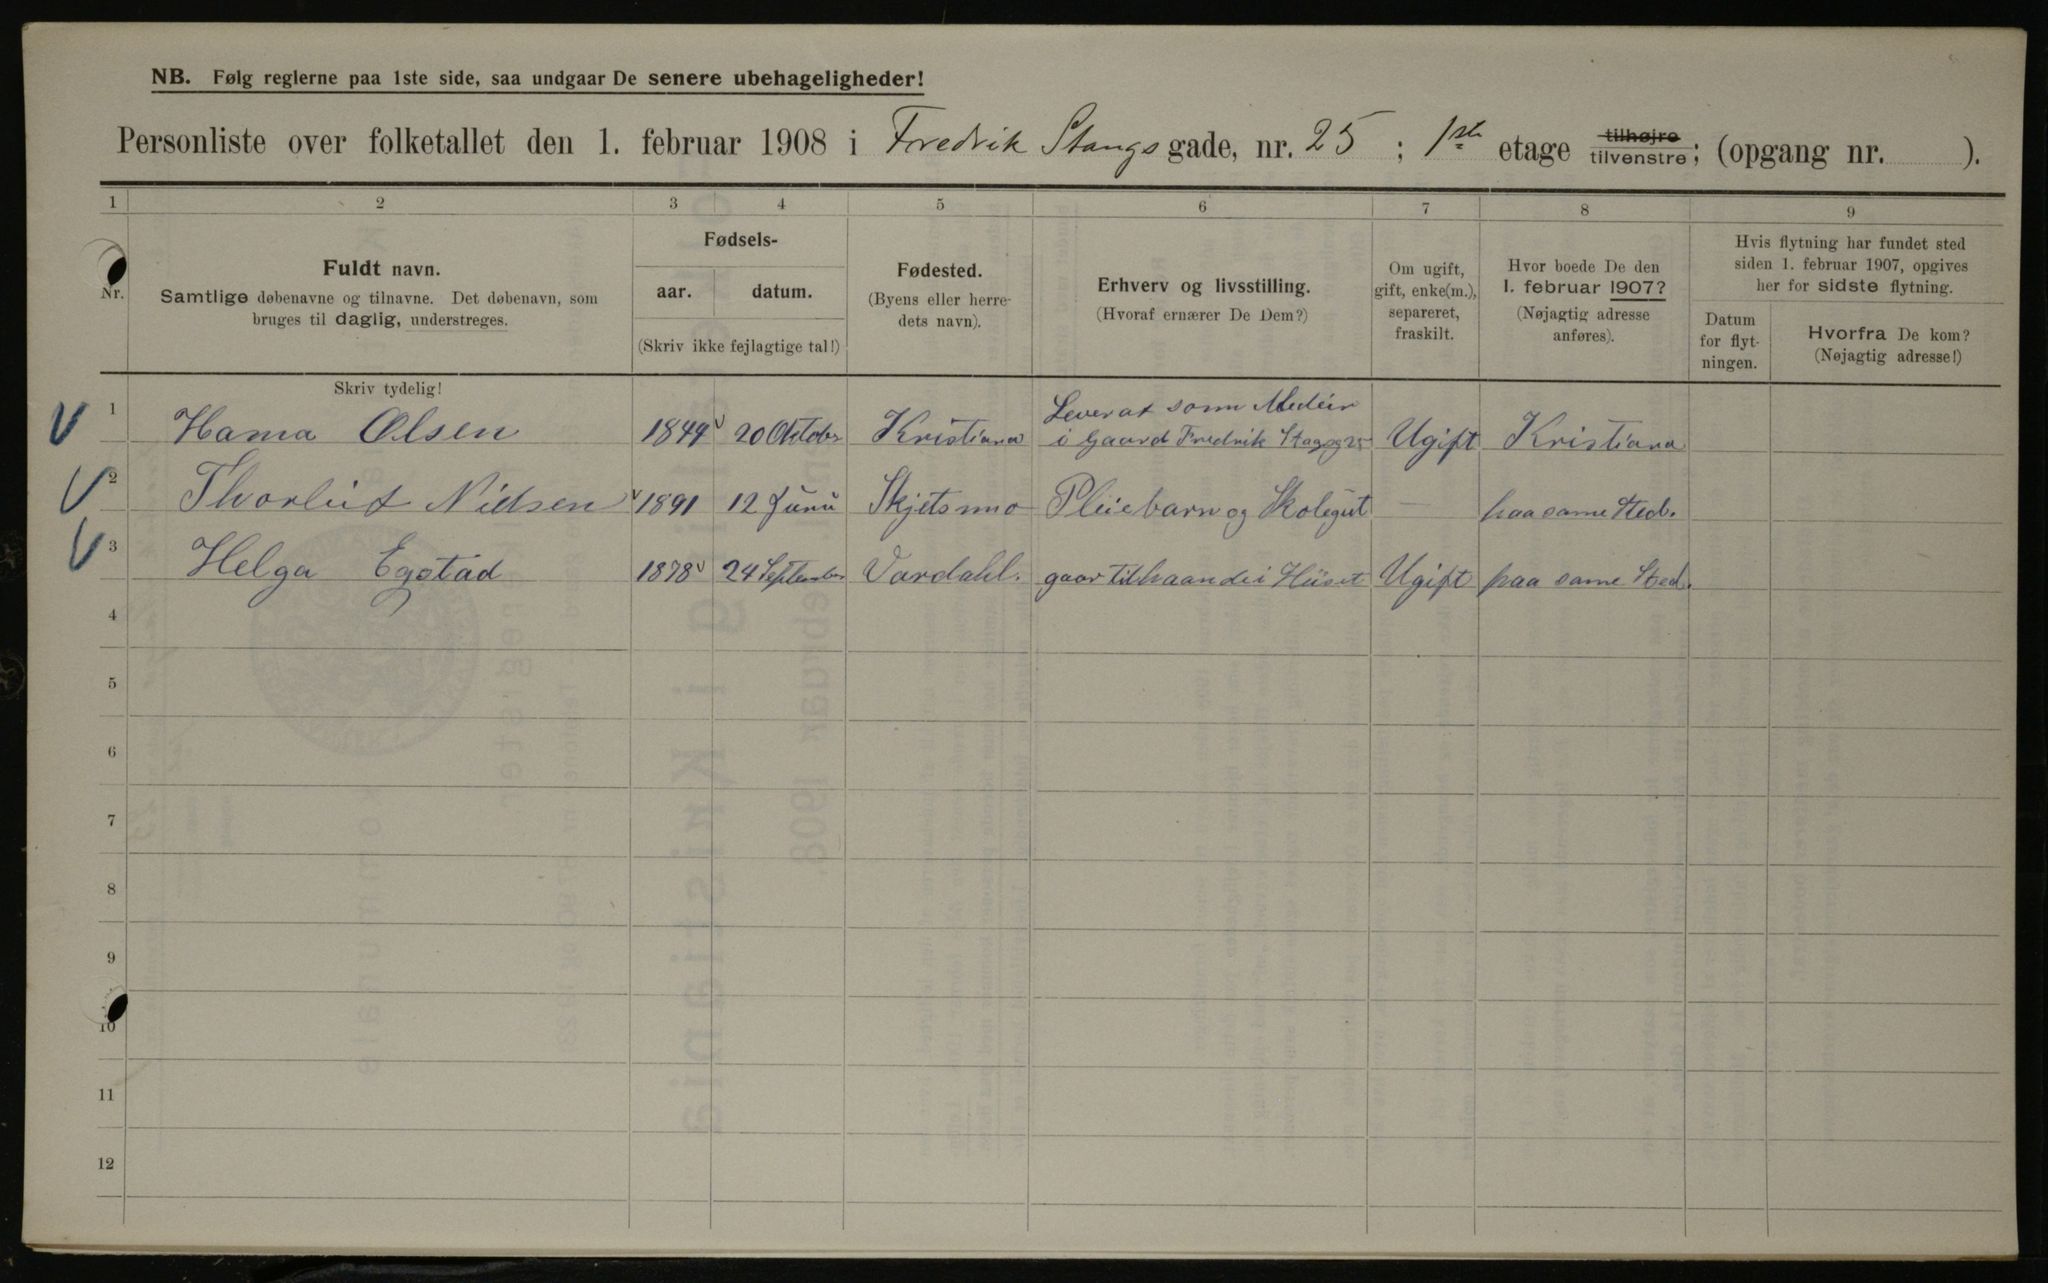 NB. Følg reglerne paa 1ste side, saa undgaar De senere ubehageligheder!
Personliste over folketallet den 1. februar 1908 i Fredrik Stangs gade, nr. 25 ; 1ste etage tilhøjre tilvenstre; (opgang nr. ).
1 2 3 4 5 6 7 8 9
Nr.
Fuldt navn.
Samtlige døbenavne og tilnavne. Det døbenavn, som
bruges til daglig, understreges.
Skriv tydelig!
Fødsels-
aar. datum.
(Skriv ikke fejlagtige tal!)
Fødested.
(Byens eller herre-
dets navn).
Erhverv og livsstilling.
(Hvoraf ernærer De Dem?)
Om ugift,
gift, enke(m.),
separeret,
fraskilt.
Hvor boede De den
1. februar 1907?
(Nøjagtig adresse
anføres).
Hvis flytning har fundet sted
siden 1. februar 1907, opgives
her for sidste flytning.
Datum
for flyt-
ningen.
Hvorfra De kom?
(Nøjagtig adresse!)
1 Hanna Olsen 1849 20 Oktober Kristiana Lever af som Medeier
i Gaard Fredrik Stagsg 25 Ugift Kristiana
2 Nielsen 1891 12 Juni Skjetsmo Pleiebarn og Skolegut — paa same Sted.
3 Helga Egstad 1878 24 September Vardahl. gaar tilhaande i Huset Ugift paa same Sted.
4
5
6
7
8
9
10
11
12